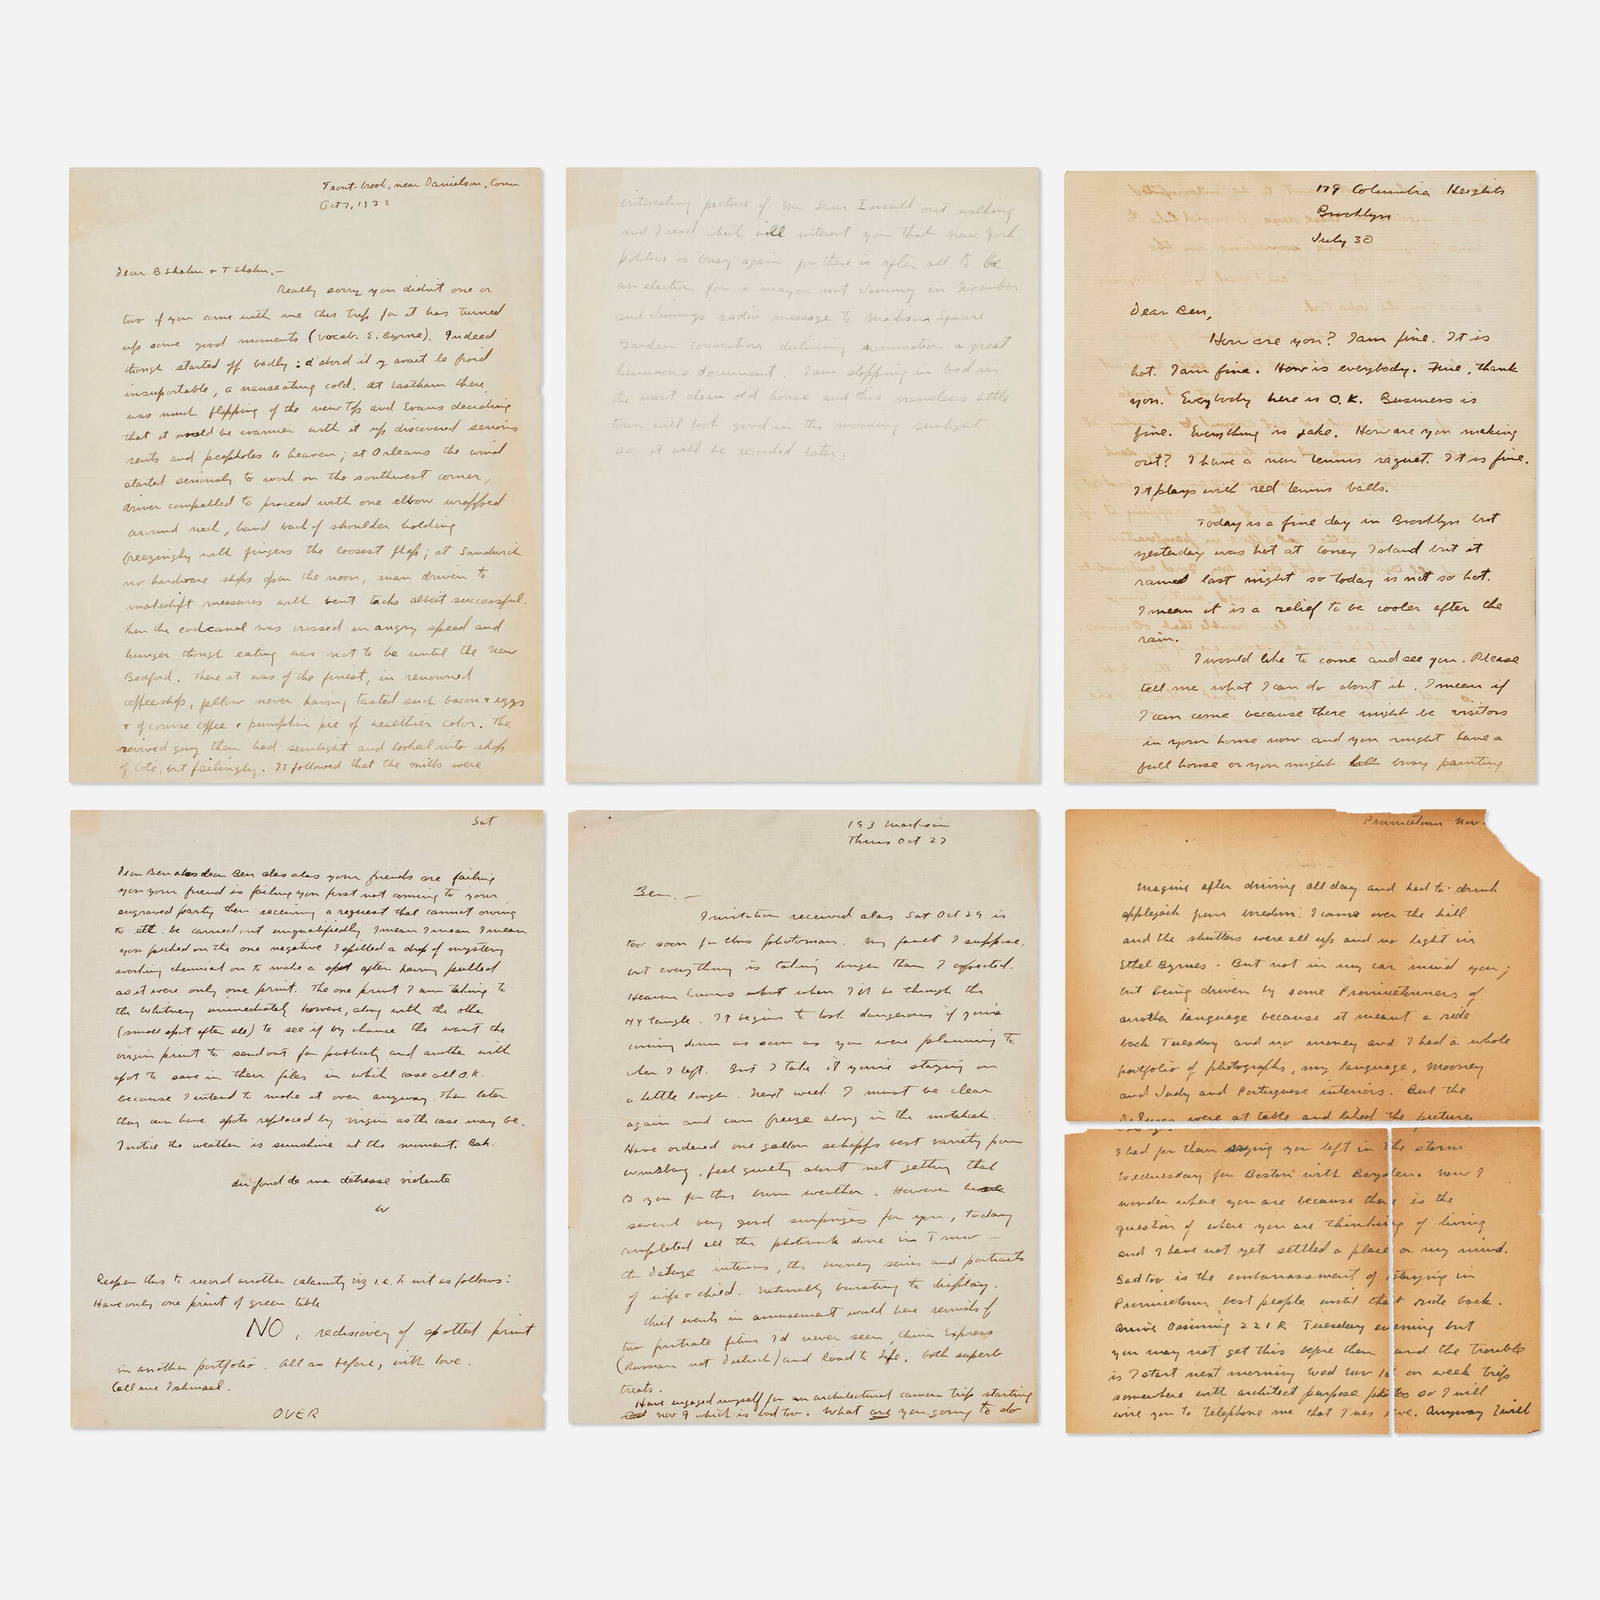 Trout-brook, near Danielson, Conn
Oct 7, 1932
Dear B Shahn + T Shahn,—
Really sorry you didn't one or
two of you come with me this trip for it has turned
up some good moments (vocab. E. Byrne). Indeed
though started off badly: d'abord il y avait le froid
insuportable, a nauseating cold. At Eastham there
was much flapping of the new top and Evans deciding
that it would be warmer with it up discovered serious
rents and peepholes to heaven; at Orleans the wind
started seriously to work on the southwest corner,
driver compelled to proceed with one elbow wrapped
around neck, hand back of shoulder holding
freezingly with fingers the loosest flap; at Sandwich
no hardware shops open the noon, man driven to
makeshift measures with bent tacks albeit successful.
Then the codcanal was crossed in angry speed and
hunger though eating was not to be until the New
Bedford. There it was of the finest, in renowned
coffeeship, fellow never having tasted such bacon + eggs
+ of course coffee + pumpkin pie of healthier color. The
revived guy then had sunlight and looked into shop
of Coté, but failingly. It followed that the mills were
interesting picture of Mr Sam Insull out walking
and I read which will interest you that New York
politics is busy again for there is after all to be
an election for a mayor not Jimmy in November
and Jimmys radio message to Madison Square
Garden convention declining nomination a great
humorous document. I am stopping in bed in
the most clean old house and this nameless little
town will look good in the morning sunlight
so it will be recorded later.
179 Columbia Heights
Brooklyn
July 30
Dear Ben,
How are you? I am fine. It is
hot. I am fine. How is everybody. Fine, thank
you. Everybody here is O.K. Business is
fine. Everything is jake. How are you making
out? I have a new tennis raquet. It is fine.
It plays with red tennis balls.
Today is a fine day in Brooklyn but
yesterday was hot at Coney Island but it
rained last night so today is not so hot.
I mean it is a relief to be cooler after the
rain.
I would like to come and see you. Please
tell me what I can do about it. I mean if
I can come because there might be visitors
in your house now and you might have a
full house or you might be busy painting
Sat
Dear Ben alas dear Ben alas alas your friends are failing
you your friend is failing you first not coming to your
engraved party then receiving a request that cannot owing
to be carried out unqualifiedly I mean I mean I mean
you picked on the one negative I spilled a drop of mystery
working chemical on to make a spot after having pulled
as it were only one print. The one print I am taking to
the Whitney immediately however, along with the other
(small spot after all) to see if by chance the want the
virgin print to send out for publicity and another with
spot to save in their files in which case all O.K.
because I intend to make it over anyway. Then later
they can have spots replaced by virgin as the case may be.
I notice the weather is sunshine at the moment. Bah.
du fond de ma détresse violente
W
Reopen this to record another calamity viz i.e. to wit as follows:
Have only one print of green table
NO, rediscovery of spotted print
in another portfolio. All as before, with love.
Call me Ishmael.
OVER
193 Madison
Thurs Oct 27
Ben.—
Invitation received alas Sat Oct 29 is
too soon for this photoman. My fault I suppose,
but everything is taking longer than I expected.
Heaven knows what when I'll be through the
NY tangle. It begins to look dangerous if you're
coming down as soon as you were planning to
when I left. But I take it you're staying on
a little longer. Next week I must be clear
again and can freeze along in the
Have ordered one gallon schapps best variety from
feel guilty about not getting that
to you for this warm weather. However
several very good surprises for you, today
completed all the photowork done in Truro —
the DeLuze interiors, the money series and portraits
of wife + child. Naturally bursting to display.
Chief events in amusement world here revivals of
two firstrate films I'd never seen, China Express
(Russian not Dietrich) and Road to Life, both superb
treats.
Have engaged myself for an architectural camera trip starting
Nov 9 which is bad too. What are you going to do
Provincetown Nov.
Imagine after driving all day and had to drink
applejack from boredom. I came over the hill
and the shutters were all up and no light in
Ethel Byrnes. But not in my car mind you;
but being driven by some Provincetowners of
another language because it meant a ride
back Tuesday and no money and I had a whole
portfolio of photographs, my language, Mooney
and Judy and Portuguese interiors. But the
were at table and liked the pictures
I had for them saying you left in the storm
Wednesday for Boston with Now I
wonder where you are because there is the
question of where you are thinking of living
and I have not yet settled a place or my mind.
Bad too is the embarrassment of staying in
Provincetown best people until that ride back.
Arrive Ossining 221 R Tuesday evening but
you may not get this before then and the trouble
is I start next morning Wed Nov 16 on week trip
somewhere with architect purpose photos so I will
wire you to telephone me that Tues eve. Anyway I will